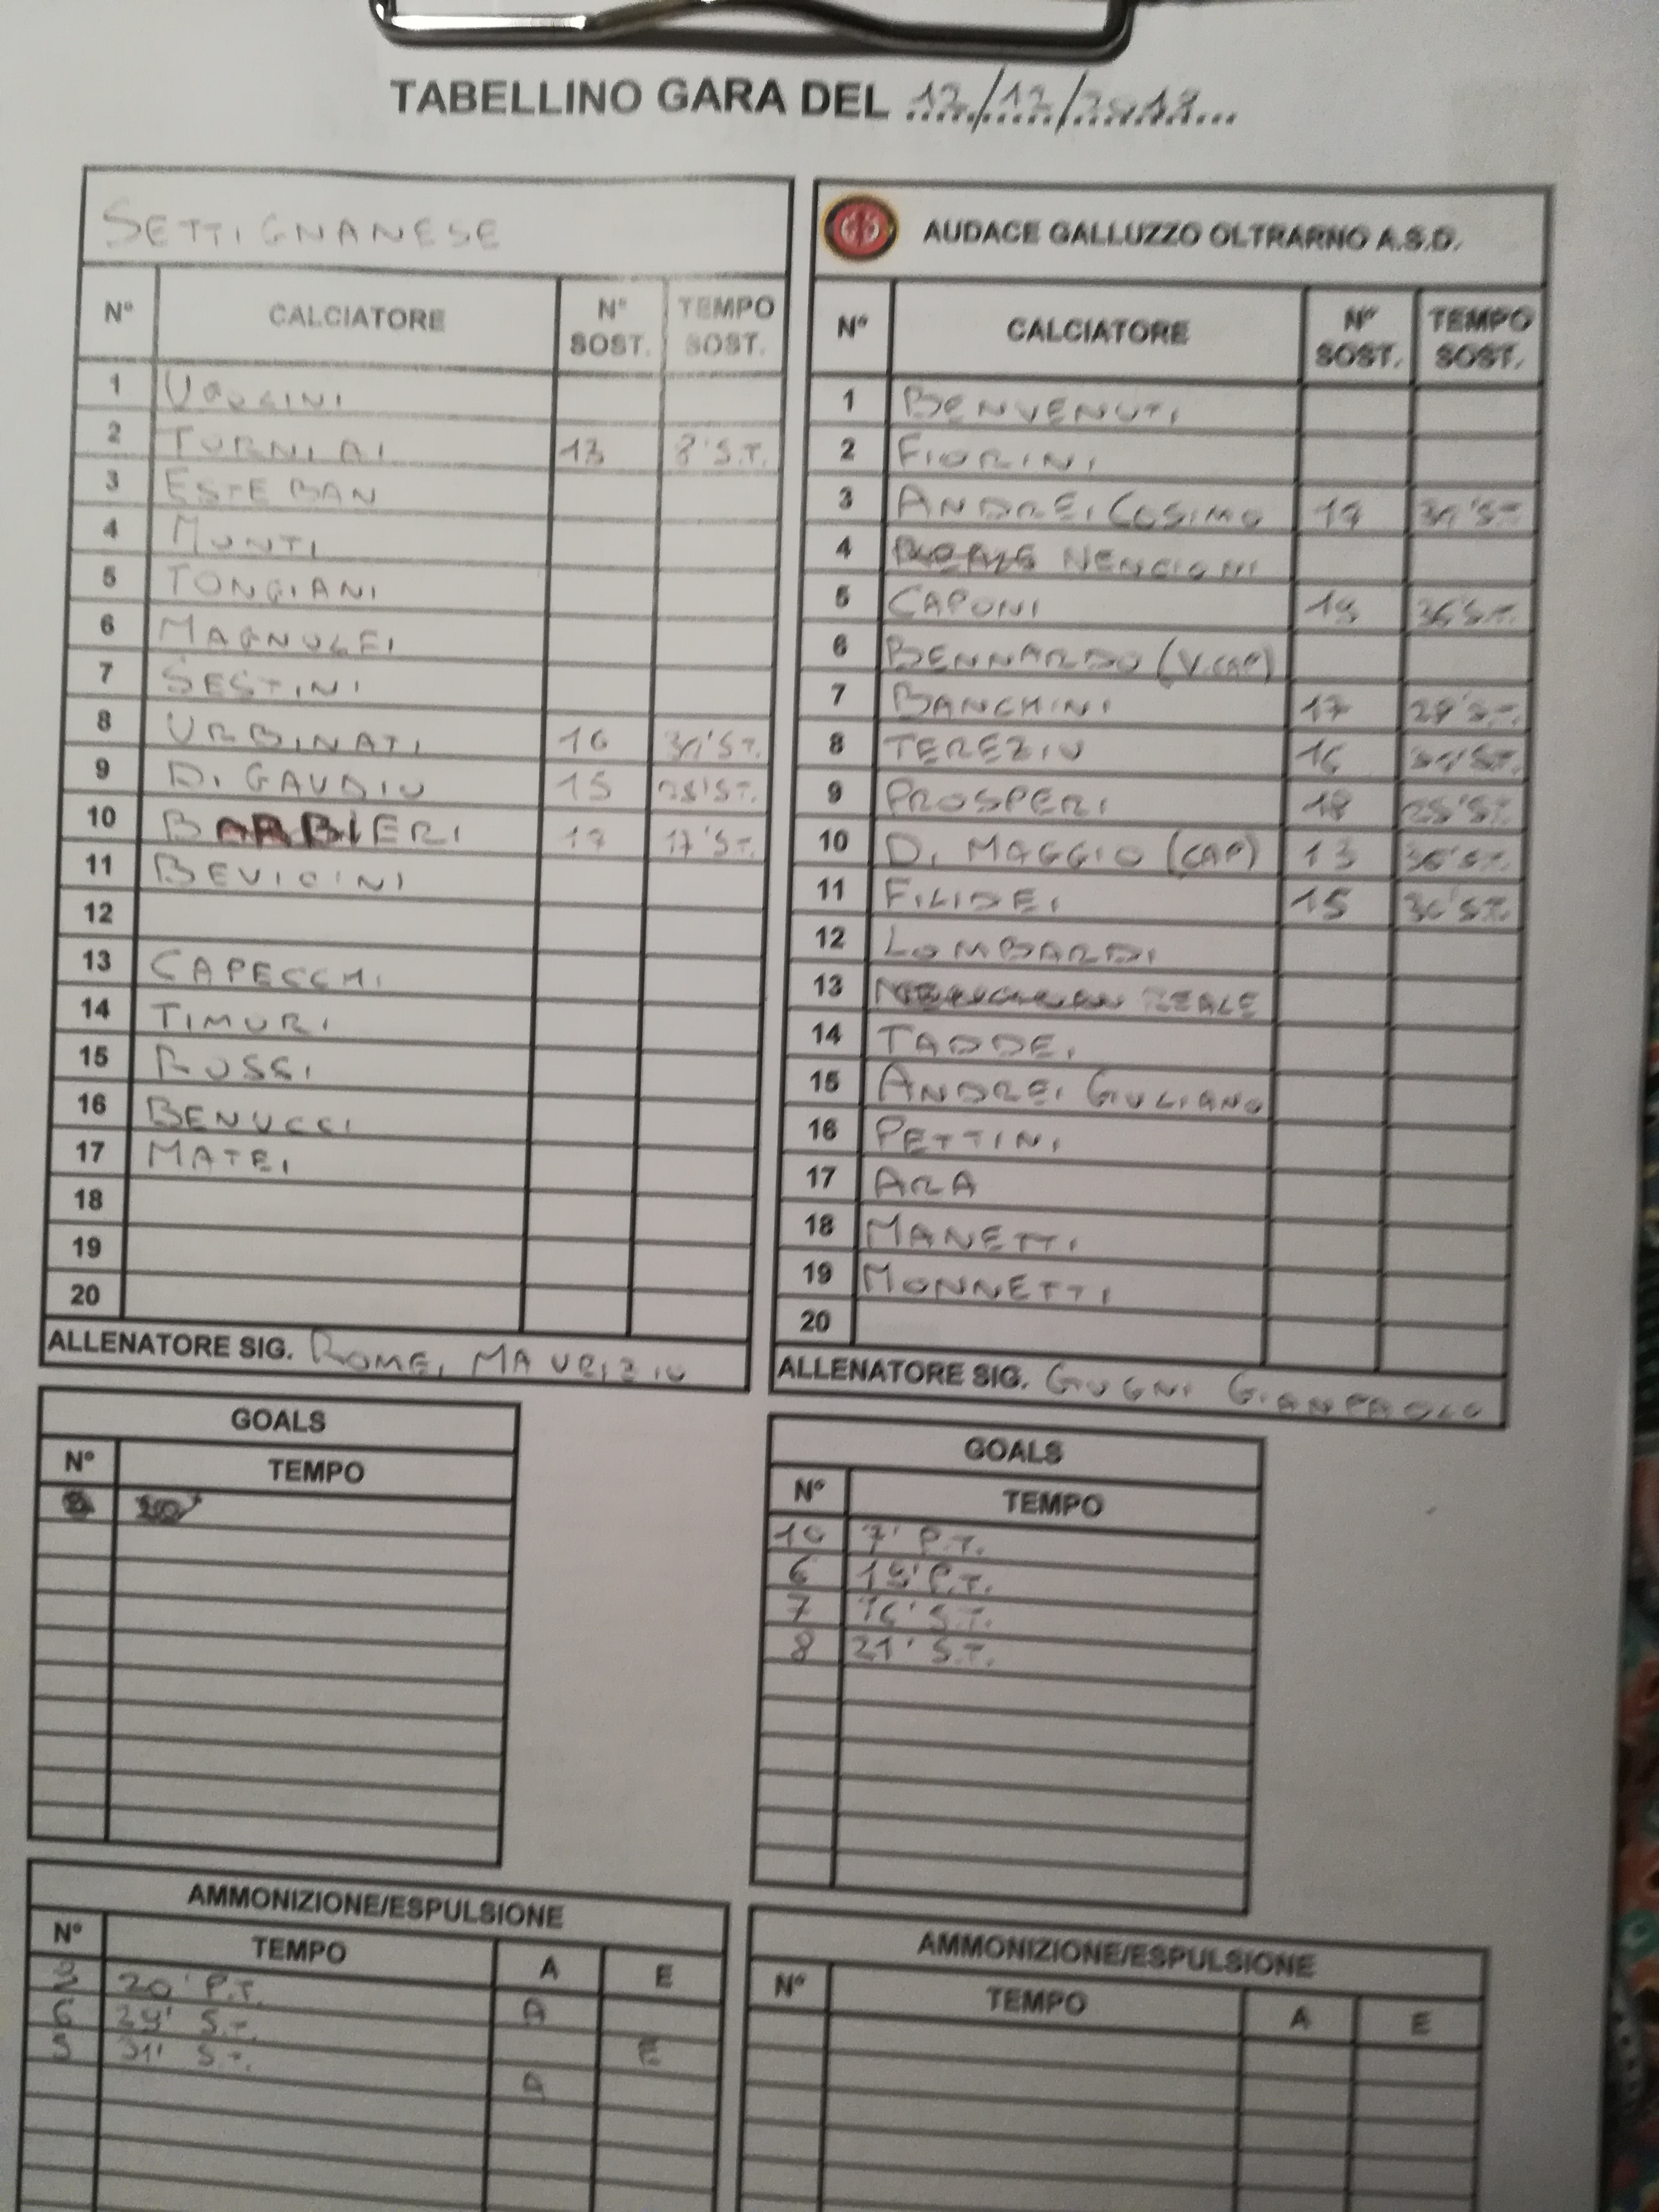 TABELLINO GARA DEL
SETTIGNANESE
N° CALCIATORE N° SOST. TEMPO SOST.
1
2 TURNIAI 13 8' S.T.
3 ESTEBAN
4 MONTI
5 TONGIANI
6 MAGNOLFI
7 SESTINI
8 URBINATI 16 31' S.T.
9 DI GAUDIO 15
10 BARBIERI 17' S.T.
11 BEVICINI
12
13 CAPECCHI
14 TIMURI
15 ROSSI
16 BENUCCI
17 MATEI
18
19
20
ALLENATORE SIG. ROMEI MAURIZIO
GOALS
N° TEMPO
AMMONIZIONE/ESPULSIONE
N° TEMPO A E
20' P.T. A
6 29' S.T. E
5 31' S.T. A
AUDACE GALLUZZO OLTRARNO A.S.D.
N° CALCIATORE N° SOST. TEMPO SOST.
1 BENVENUTI
2 FIORINI
3 ANDREI COSIMO
4 NENCIONI
5 CAPONI 36' S.T.
6 BENNARDO (V.CAP)
7 BANCHINI 17
8 TEREZIO 16
9 PROSPERI 18
10 DI MAGGIO (CAP) 13 36' S.T.
11 FILIDEI 15 36' S.T.
12 LOMBARDI
13 REALE
14 TADDEI
15 ANDREI GIULIANO
16 PETTINI
17 ARA
18 MANETTI
19 MONNETTI
20
ALLENATORE SIG. GIUGNI GIANPAOLO
GOALS
N° TEMPO
10 7' P.T.
6 19' P.T.
7 16' S.T.
8 21' S.T.
AMMONIZIONE/ESPULSIONE
N° TEMPO A E